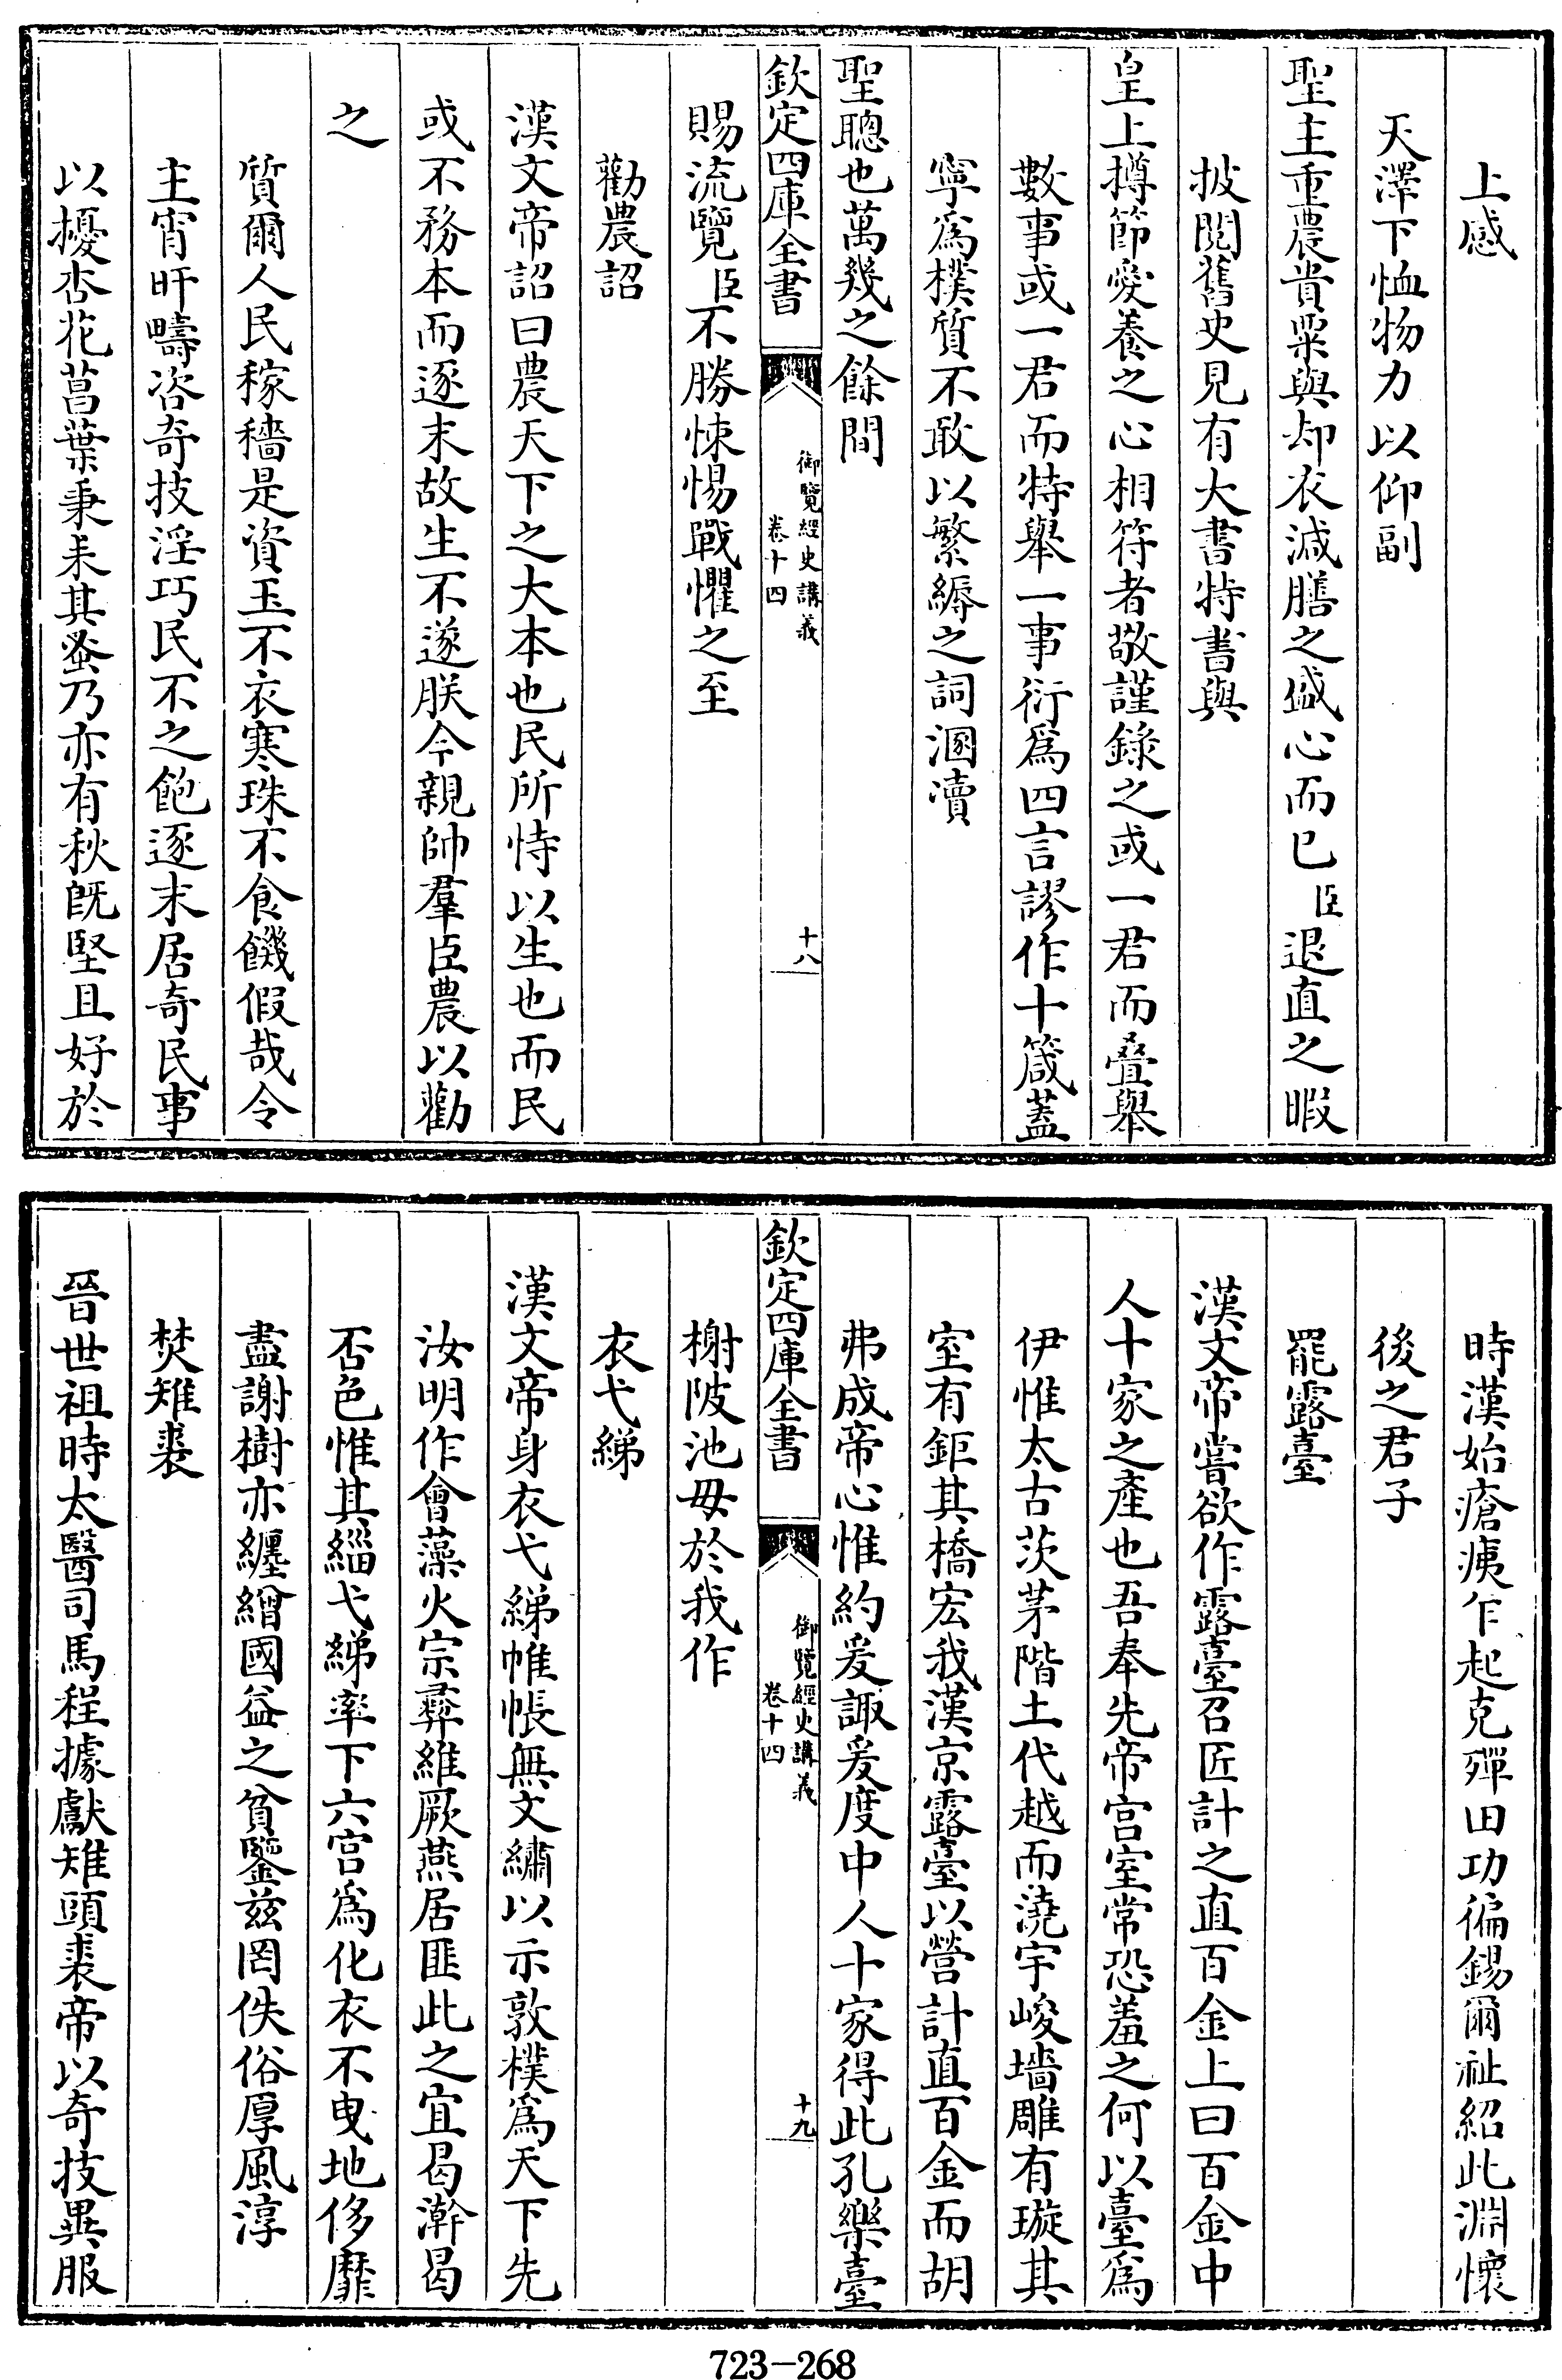 上感
天澤下恤物力以仰副
聖主重農貴粟與却衣減膳之盛心而已臣退直之暇
披閱舊史見有大書特書與
皇上撙節愛養之心相符者敬謹錄之或一君而疊舉
數事或一君而特舉一事衍爲四言謬作十箴蓋
寧爲樸質不敢以繁縟之詞溷瀆
聖聰也萬幾之餘間
欽定四庫全書
御覽經史講義
卷十四
十八
賜流覽臣不勝悚惕戰懼之至
勸農詔
漢文帝詔曰農天下之大本也民所恃以生也而民
或不務本而逐末故生不遂朕今親帥羣臣農以勸
之
質爾人民稼穡是資玉不衣寒珠不食饑假哉令
主宵旰疇咨奇技淫巧民不之飽逐末居奇民事
以擾杏花菖葉秉耒其蚤乃亦有秋旣堅且好於
時漢始瘡痍乍起克殫田功徧錫爾祉紹此淵懷
後之君子
罷露臺
漢文帝嘗欲作露臺召匠計之直百金上曰百金中
人十家之產也吾奉先帝宫室常恐羞之何以臺爲
伊惟太古茨茅階土代越而澆宇峻墻雕有璇其
室有鉅其橋宏我漢京露臺以營計直百金而胡
弗成帝心惟約爰諏爰度中人十家得此孔樂臺
欽定四庫全書
御覽經史講義
卷十四
十九
榭陂池毋於我作
衣弋綈
漢文帝身衣弋綈帷帳無文繡以示敦樸爲天下先
汝明作會藻火宗彞維厥燕居匪此之宜曷澣曷
否色惟其緇弋綈率下六宫爲化衣不曳地侈靡
盡謝樹亦纏繒國益之貧鑒兹罔佚俗厚風淳
焚雉裘
晉世祖時太醫司馬程據獻雉頭裘帝以奇技異服
723-268